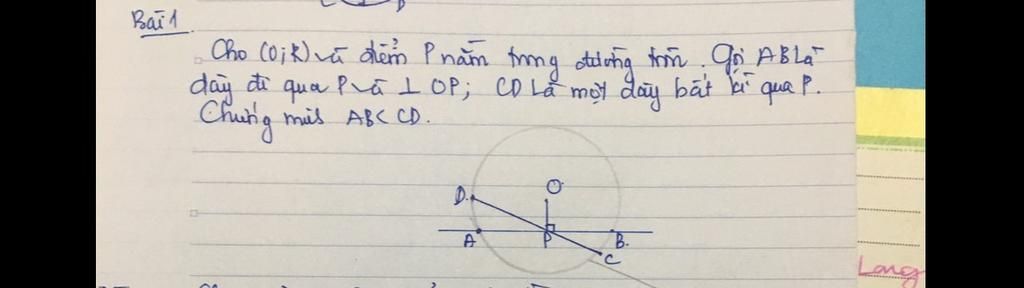 Bài 1
Cho (O;R) và điểm P nằm trong đường tròn. Gọi AB là
dây đi qua P và ⊥ OP; CD là một dây bất kì qua P.
Chứng minh AB < CD.
O
D
A
P
B
C
Long